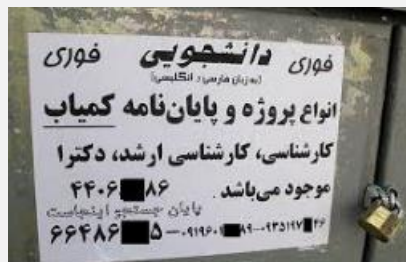 فوری دانشجویی فوری
(به زبان فارسی، انگلیسی)
انواع پروژه و پایان‌نامه کمیاب
کارشناسی، کارشناسی ارشد، دکترا
موجود می‌باشد. ۴۴۰۶ ۸۶
پایان جستجو اینجاست
۶۶۴۸۶ ۵-۰۹۱۹۶۰۱ ۸۹-۰۹۳۵۱۹۷ ۴۶